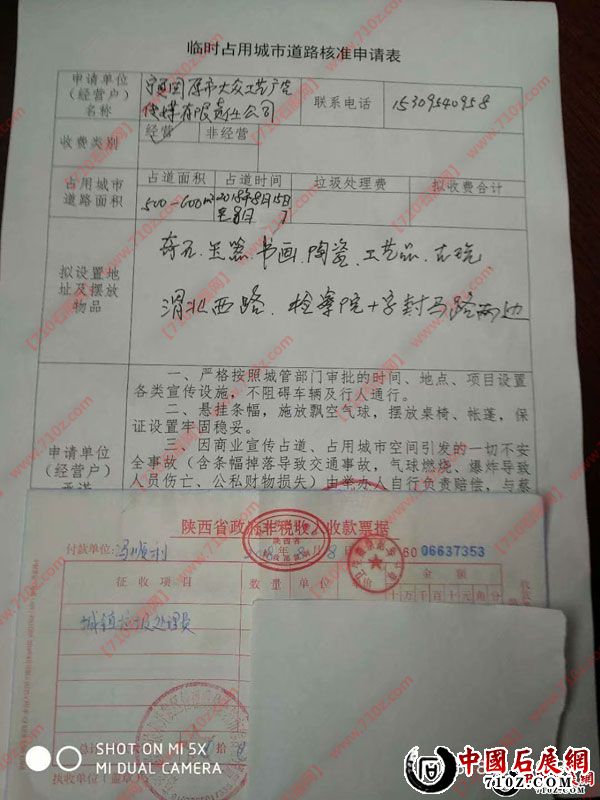 临时占用城市道路核准申请表
申请单位
（经营户）
名称
宁夏固原市大众工艺广告
传媒有限责任公司
联系电话
15309540958
收费类别
经营
非经营
占用城市
道路面积
占道面积
占道时间
垃圾处理费
拟收费合计
500-600㎡
2018年8月15日
拟设置地
址及摆放
物品
奇石.玉器.书画.陶瓷.工艺品.古玩
渭北西路.检察院十字封马路两边
申请单位
（经营户）
承诺
一、严格按照城管部门审批的时间、地点、项目设置
各类宣传设施，不阻碍车辆及行人通行。
二、悬挂条幅，施放飘空气球，摆放桌椅、帐蓬，保
证设置牢固稳妥。
三、因商业宣传占道、占用城市空间引发的一切不安
全事故（含条幅掉落导致交通事故，气球燃烧、爆炸导致
人员伤亡、公私财物损失）由举办人自行负责赔偿，与蔡
陕西省政府非税收入收款票据
付款单位：冯顺利
年8月8日
06637353
征收项目
数量
单位
金额
十万千百十元角分
城镇垃圾处理费
执收单位（盖章）
SHOT ON MI 5X
MI DUAL CAMERA
中國石展網
710Z.COM
【710石展网】www.710z.com